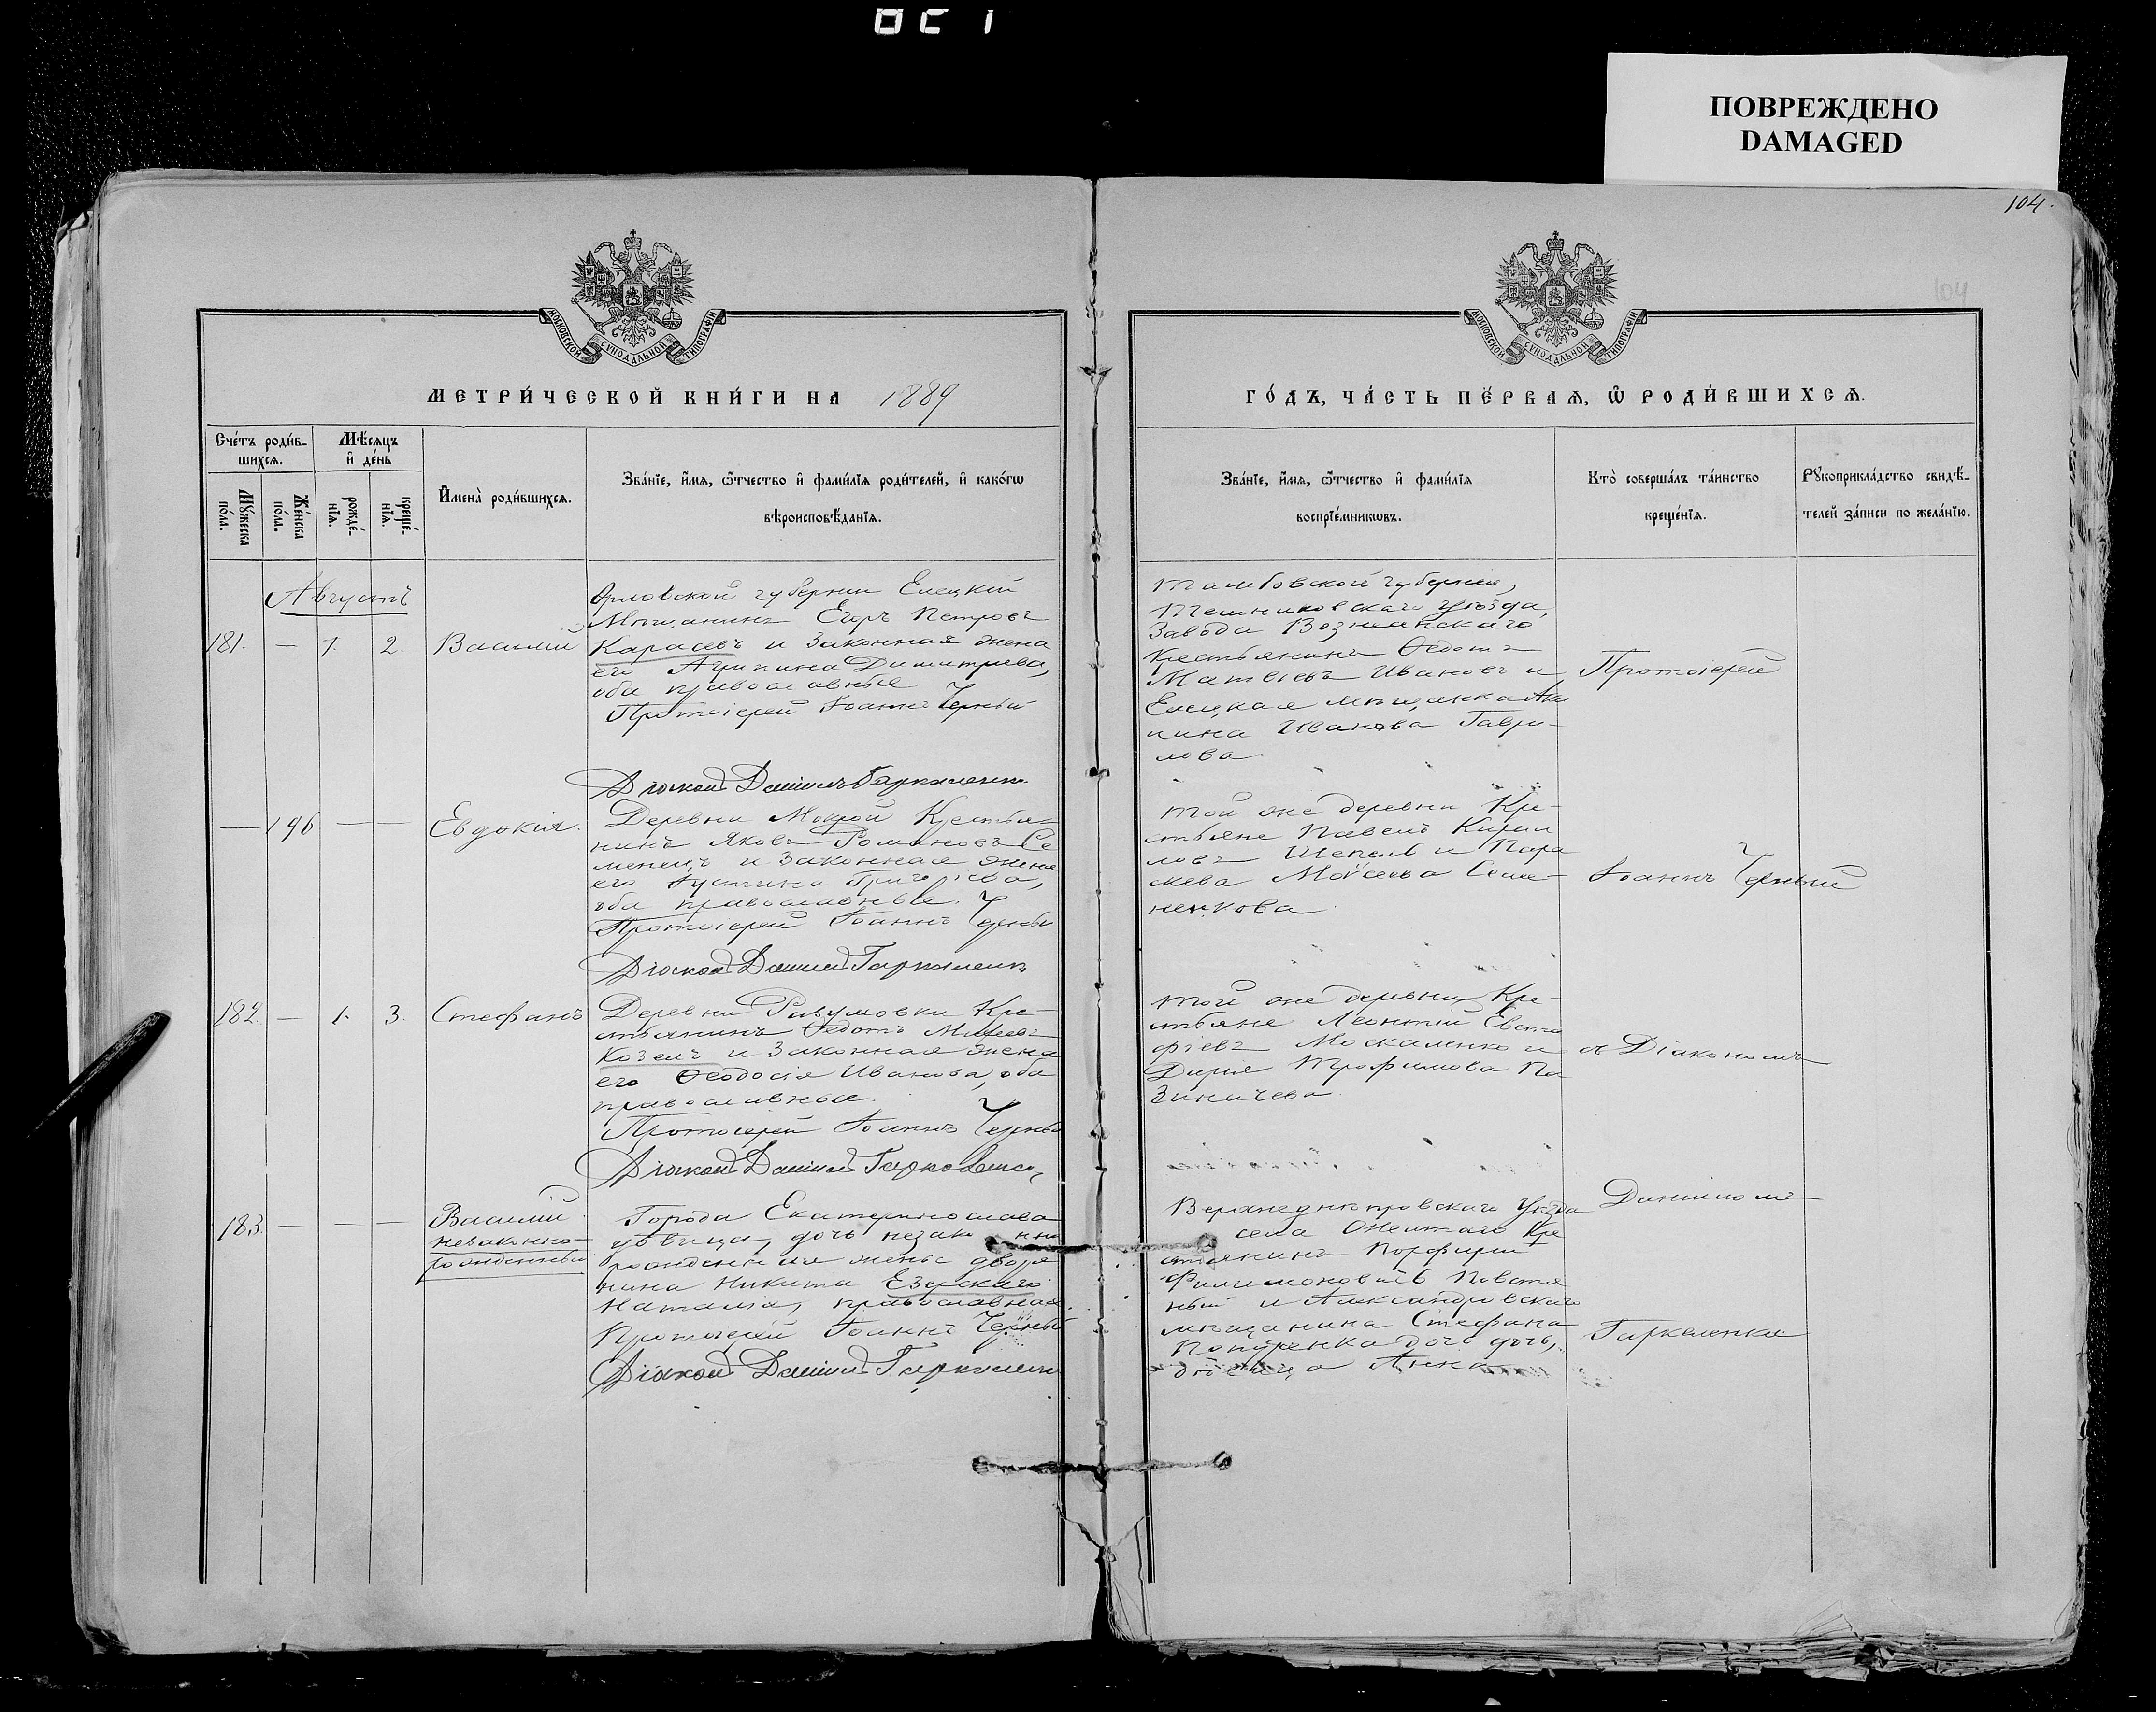 ПОВРЕЖДЕНО
DAMAGED
104.
104
МОСКОВСКОЙ СѴНОДАЛЬНОЙ ТИПОГРАФІИ
МОСКОВСКОЙ СѴНОДАЛЬНОЙ ТИПОГРАФІИ
МЕТРИ́ЧЕСКОЙ КНИ́ГИ НА 1889
ГО́ДЪ, ЧА́СТЬ ПЕ́РВАѦ, Ѽ РОДИ́ВШИХСѦ.
Сче́тъ роди́в-
шихсѧ.
Мѣ́сѧцъ
и҆ де́нь
Мꙋ́жеска по́ла.
Же́нска по́ла.
рожде́-нїѧ.
креще́-нїѧ.
И҆мена̀ роди́вшихсѧ.
Зва́нїе, и҆́мѧ, ѻ҆́тчество и҆ фами́лїѧ роди́телей, и҆ како́гѡ
вѣроисповѣ́данїѧ.
Зва́нїе, и҆́мѧ, ѻ҆́тчество и҆ фами́лїѧ
воспрїе́мникѡвъ.
Кто̀ соверша́лъ та́инство
креще́нїѧ.
Рꙋкоприкла́дство свидѣ́-
телей за́писи по жела́нїю.
Августъ
181. — 1. 2. Василій
Орловской губерніи Елецкій
Мѣщанинъ Егоръ Петровъ
Карасевъ и законная жена
его Агрипина Димитріева,
оба православные
Протоіерей Іоаннъ Черный
Діаконъ Даніилъ Гаркаленко
Тамбовской губерніи,
уѣзда,
Завода Вознесенскаго
Крестьянинъ Ѳедотъ
Матвіевъ Ивановъ и
Елецкая мѣщанка
Иванова Гаври-
лова
Протоіерей
— 196 — — Евдокія.
Деревни Мокрой Крестья-
нинъ Яковъ Романовъ Се
и законная жена
его Іустина
оба православные.
Протоіерей Іоаннъ Черный
Діаконъ Даніилъ Гаркаленко
Той же деревни Кре-
стьяне Павелъ Кирил
ловъ и Пара
скева Моѵсеева Семе-
ненкова
Іоаннъ Черный
182. — 1. 3. Стефанъ
Деревни Разумовки Кре-
стьянинъ Ѳедотъ
Козелъ и законная жена
его Ѳеодосія Иванова, оба
православные.
Протоіерей Іоаннъ Черный
Діаконъ Даніилъ Гаркаленко
Той же деревни Кре-
стьяне Леонтій Евста
фіевъ Москаленко и
Дарія Трофимова Па
зиничева
съ Діакономъ
183. — — — Василій
незаконно-
рожденный
Города Екатеринослава
дочь
жены дворя
нина Никита Езерскаго
Наталія, православная.
Протоіерей Іоаннъ Черный
Діаконъ Даніилъ Гаркаленко
Верхнеднѣпровскаго Уѣзда
села Желтаго Кре
стьянинъ Порфирій
Филимоновичъ
и Александровскаго
мѣщанина Стефана
дочь,
дѣвица Анна
Даніиломъ
Гаркаленко